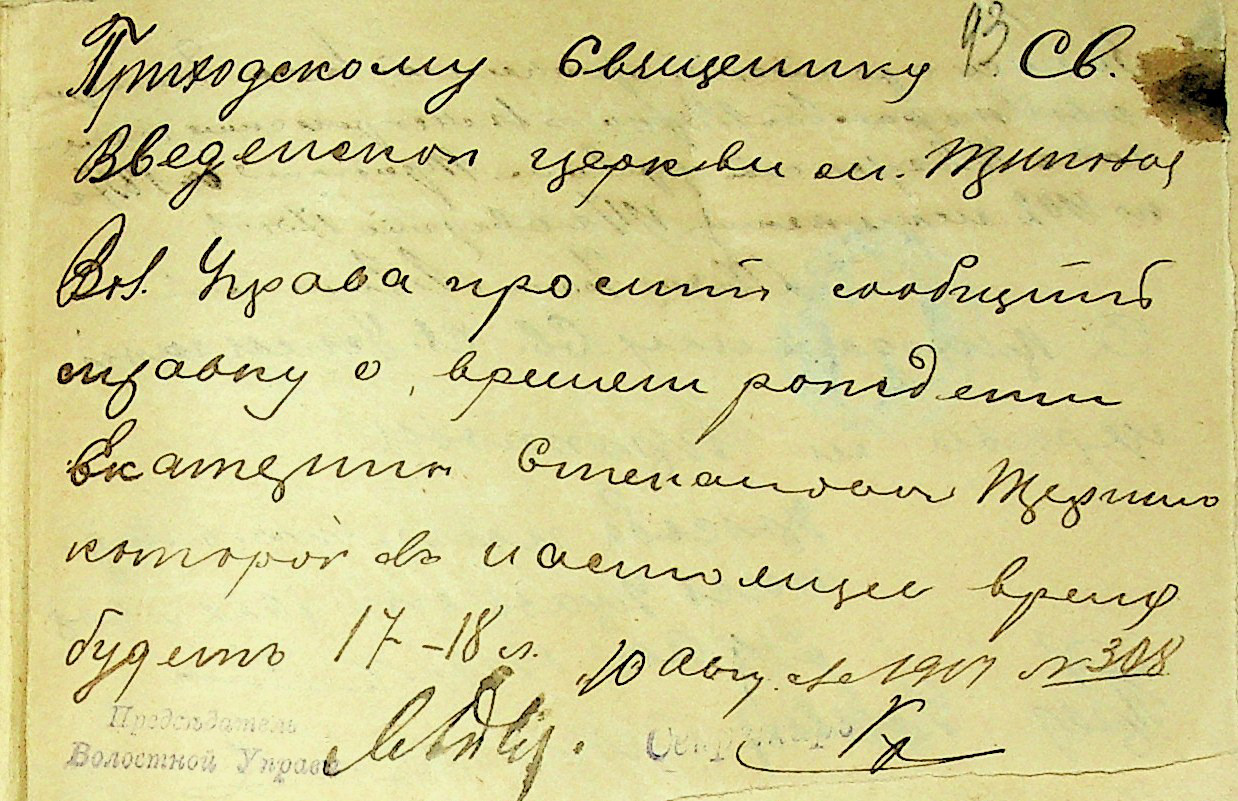 93
Приходскому Священнику Св.
Введенской церкви м.
Вол. Управа просит сообщить
справку о времени рождения
Екатерины Степановны
которой в настоящее время
будет 17-18 л. 10 Августа 1917 № 308
Председатель
Волостной Управы
Секретарь